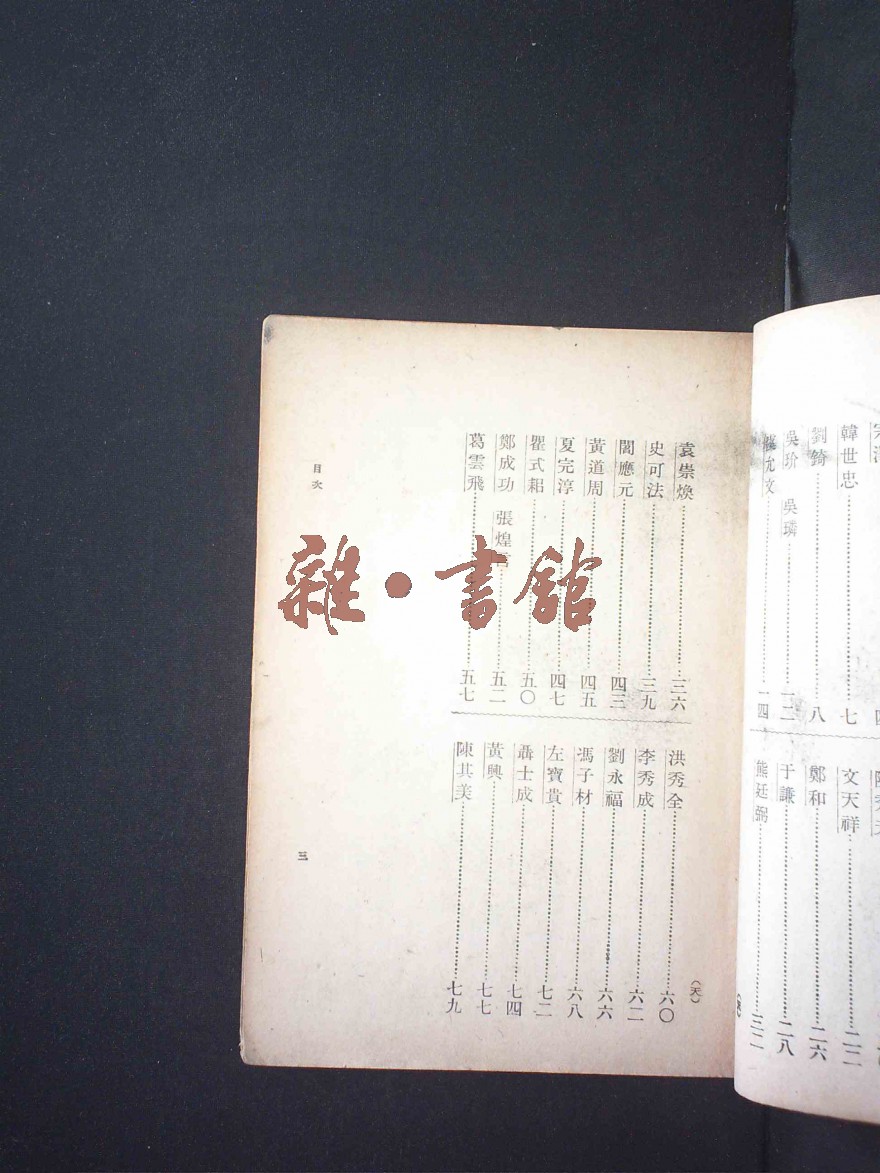 韓世忠……七
劉錡……八
吳玠 吳璘……一二
虞允文……一四
文天祥……二二
鄭和……二六
于謙……二八
熊廷弼……三二
袁崇煥……三六
史可法……三九
閻應元……四三
黃道周……四五
夏完淳……四七
瞿式耜……五〇
鄭成功 張煌言……五二
葛雲飛……五七
洪秀全……六〇
李秀成……六二
劉永福……六六
馮子材……六八
左寶貴……七二
聶士成……七四
黃興……七七
陳其美……七九
(天)
目次
三
雜·書館